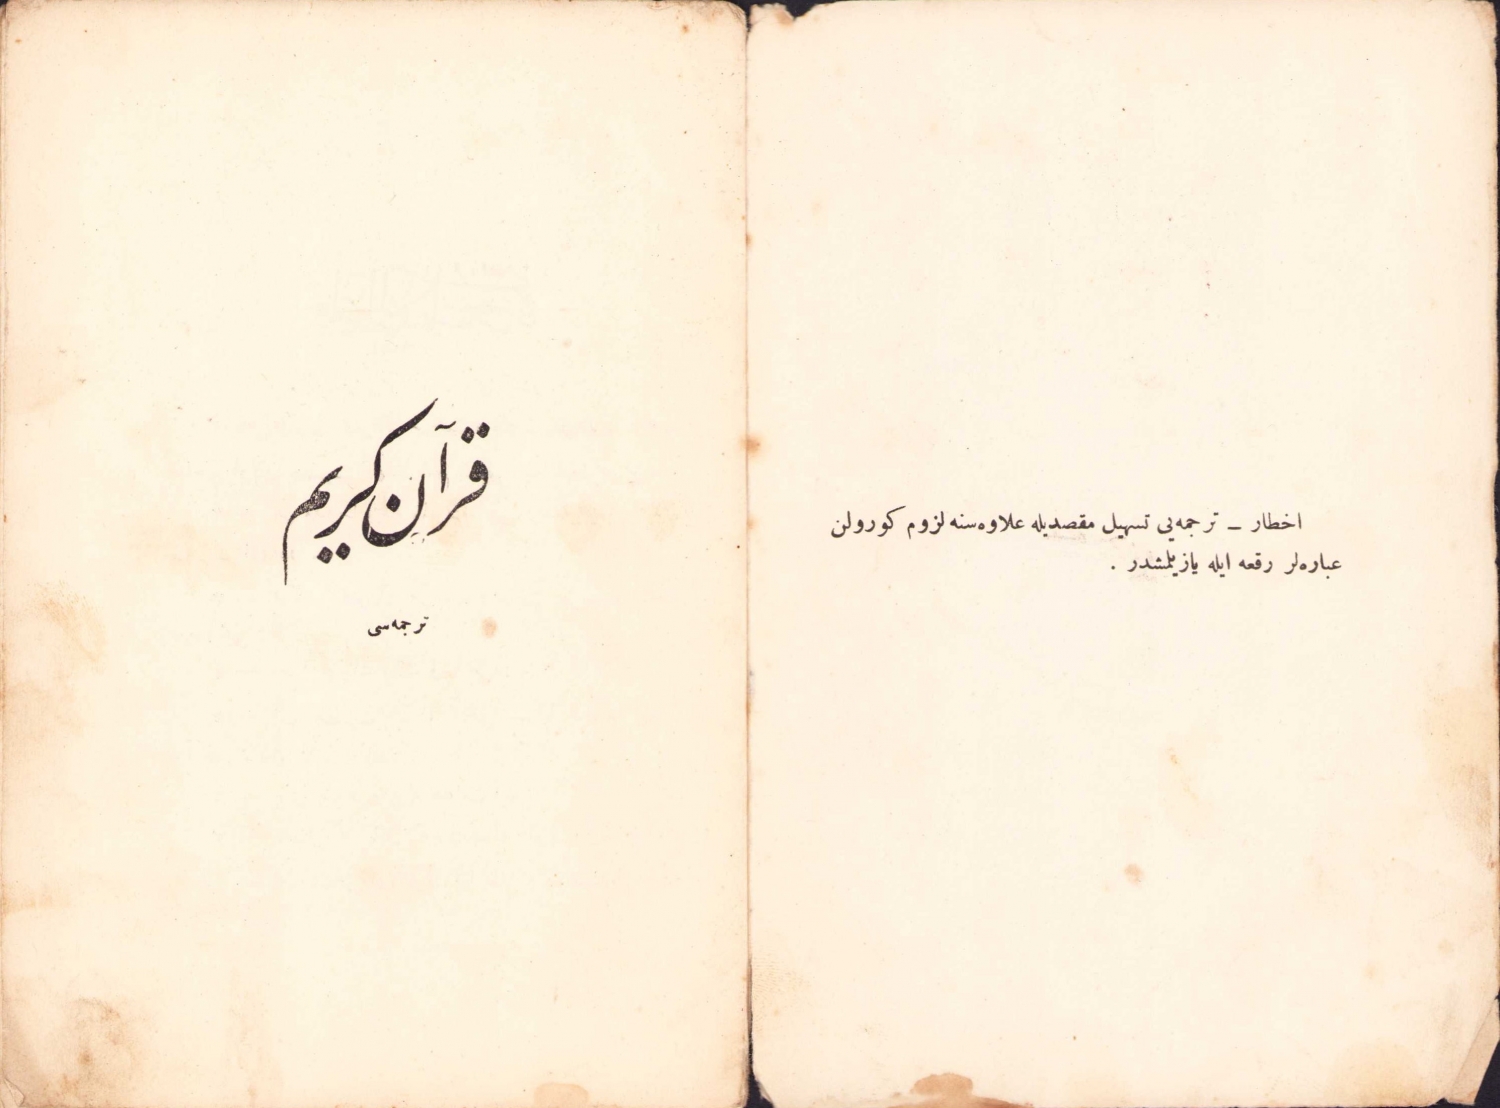 اخطار – ترجمه‌یی تسهیل مقصدیله علاوه‌سنه لزوم کورولن
عباره‌لر رقعه ایله یازیلمشدر .
قرآن کریم
ترجمه‌سی